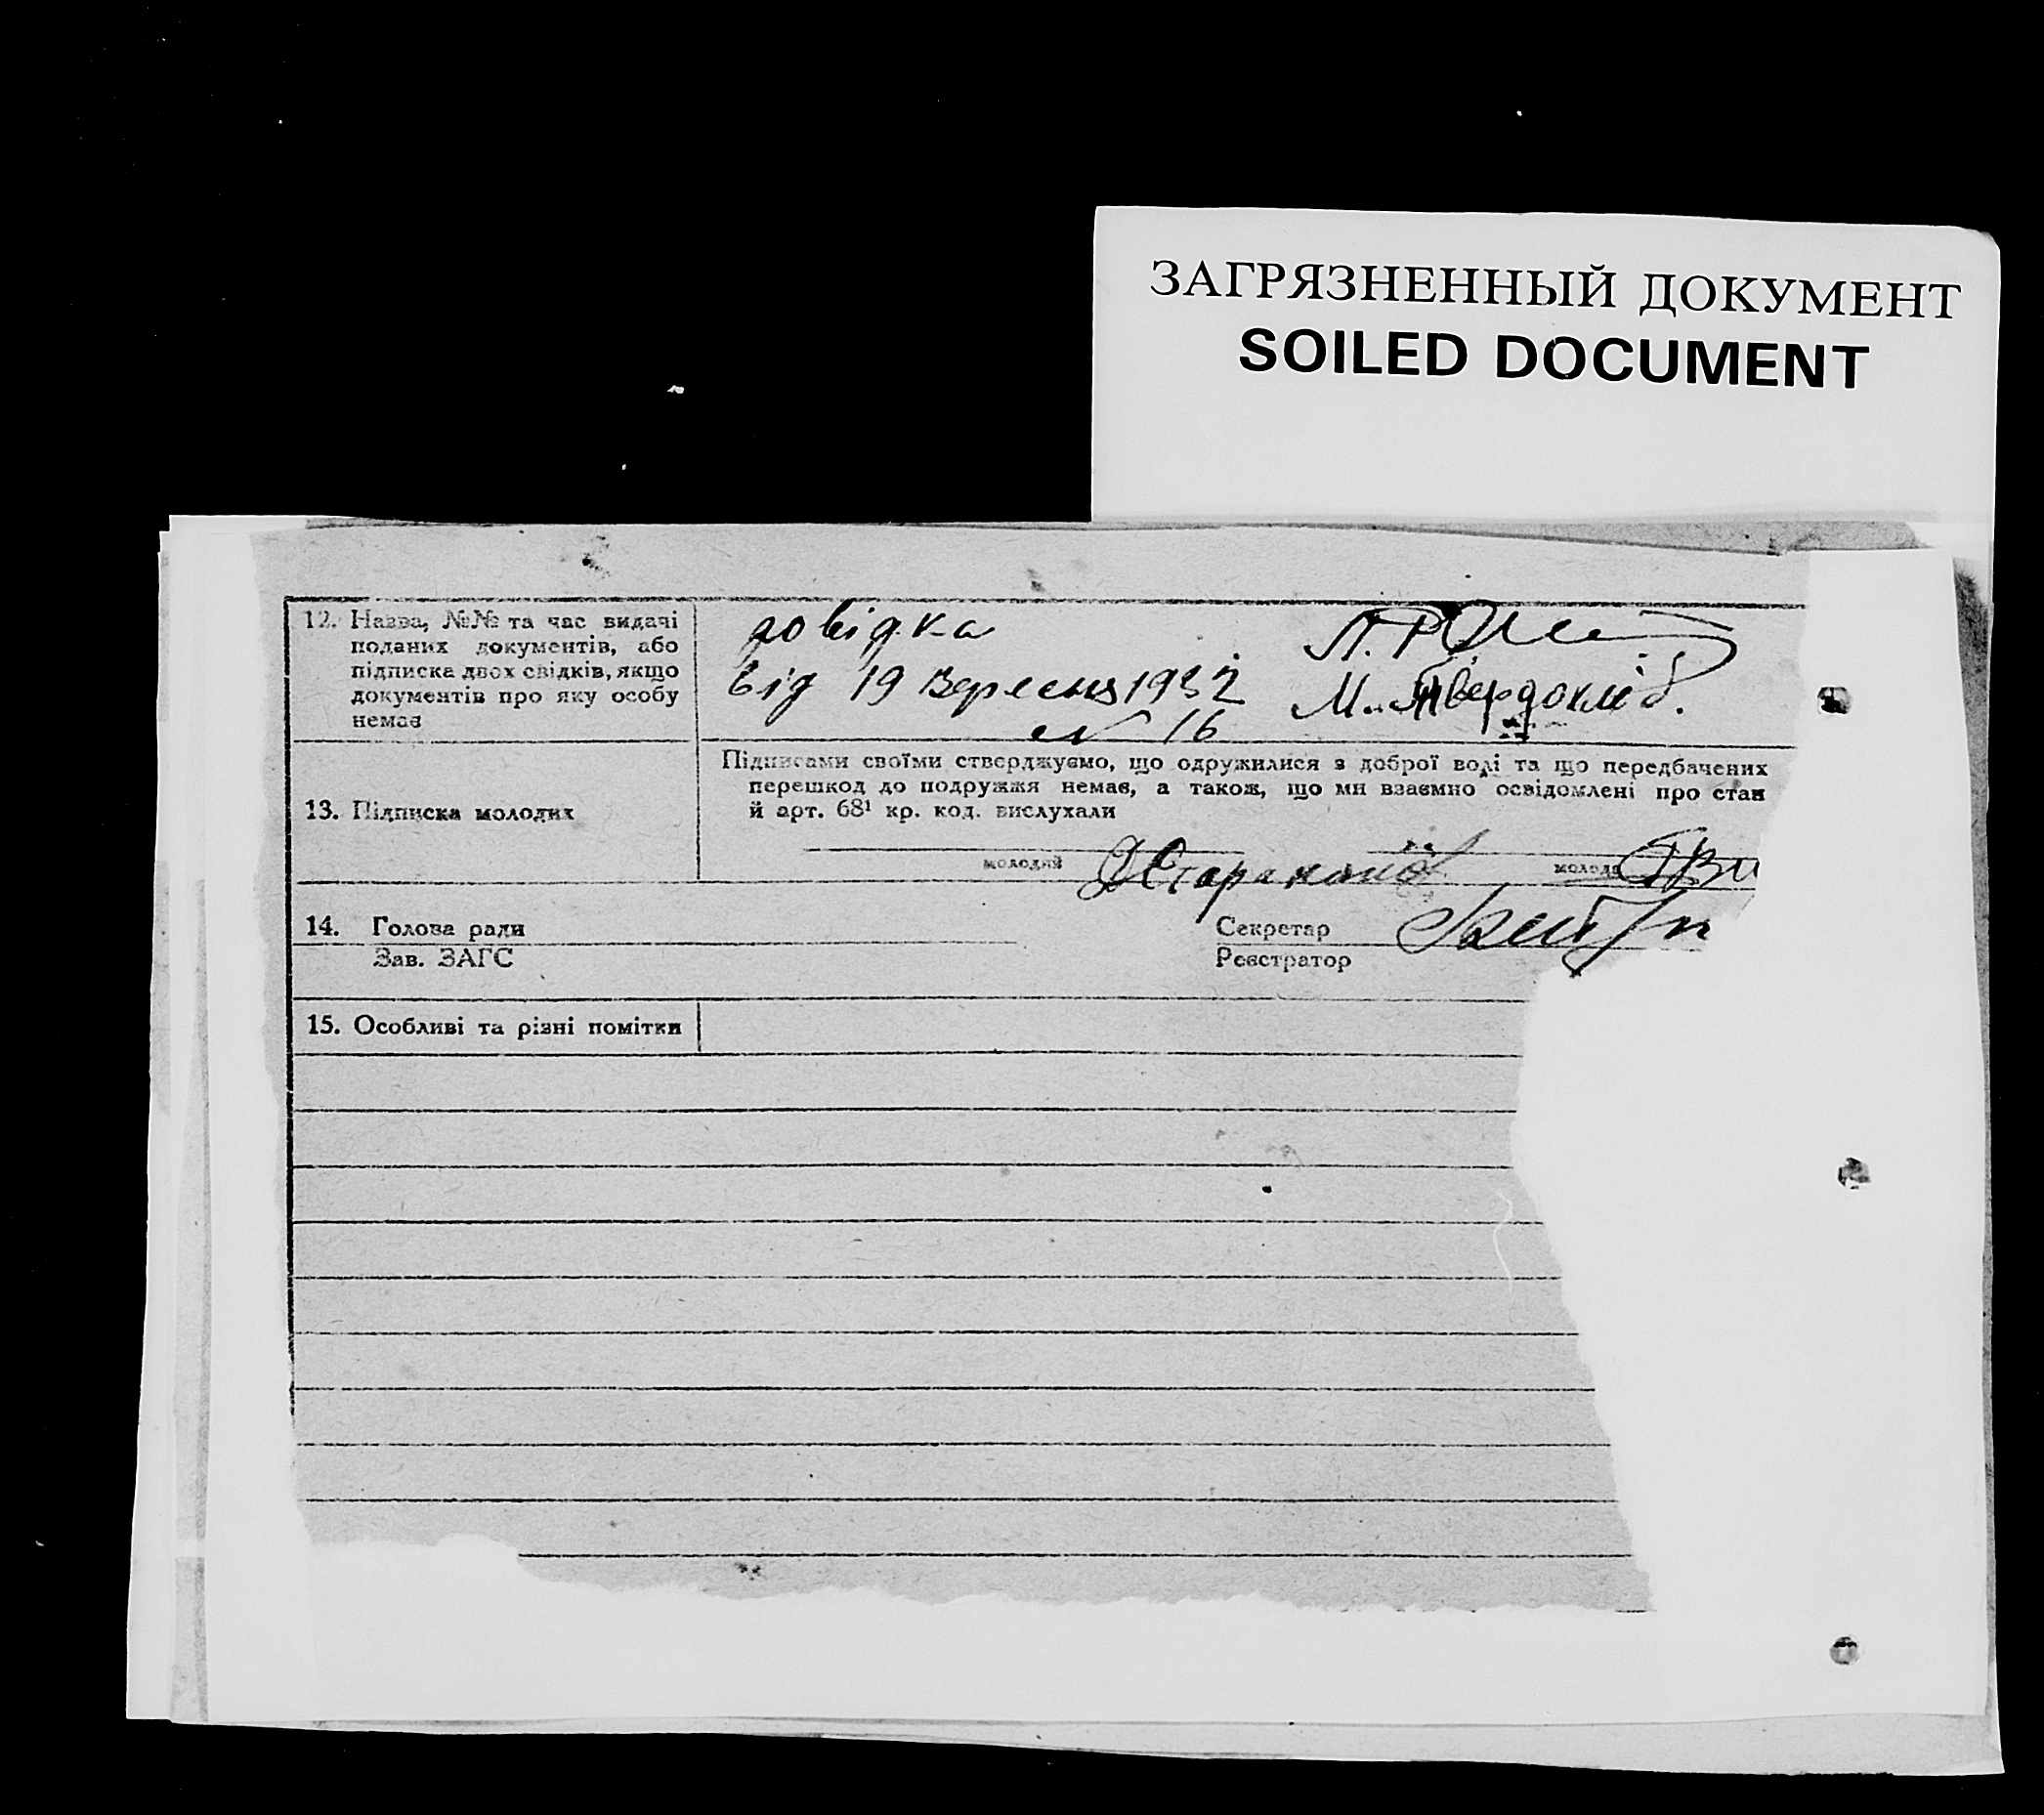 ЗАГРЯЗНЕННЫЙ ДОКУМЕНТ
SOILED DOCUMENT
12. Назва, №№ та час видачі
поданих документів, або
підписка двох свідків, якщо
документів про яку особу
немає
довідка
від 19 Вересня 1932
№ 16
М. Твердохліб.
13. Підписка молодих
Підписами своїми стверджуємо, що одружилися з доброї волі та що передбачених
перешкод до подружжя немає, а також, що ми взаємно освідомлені про стан
й арт. 68¹ кр. код. вислухали
молодий
молода
14. Голова ради
Секретар
Зав. ЗАГС
Реєстратор
15. Особливі та різні помітки